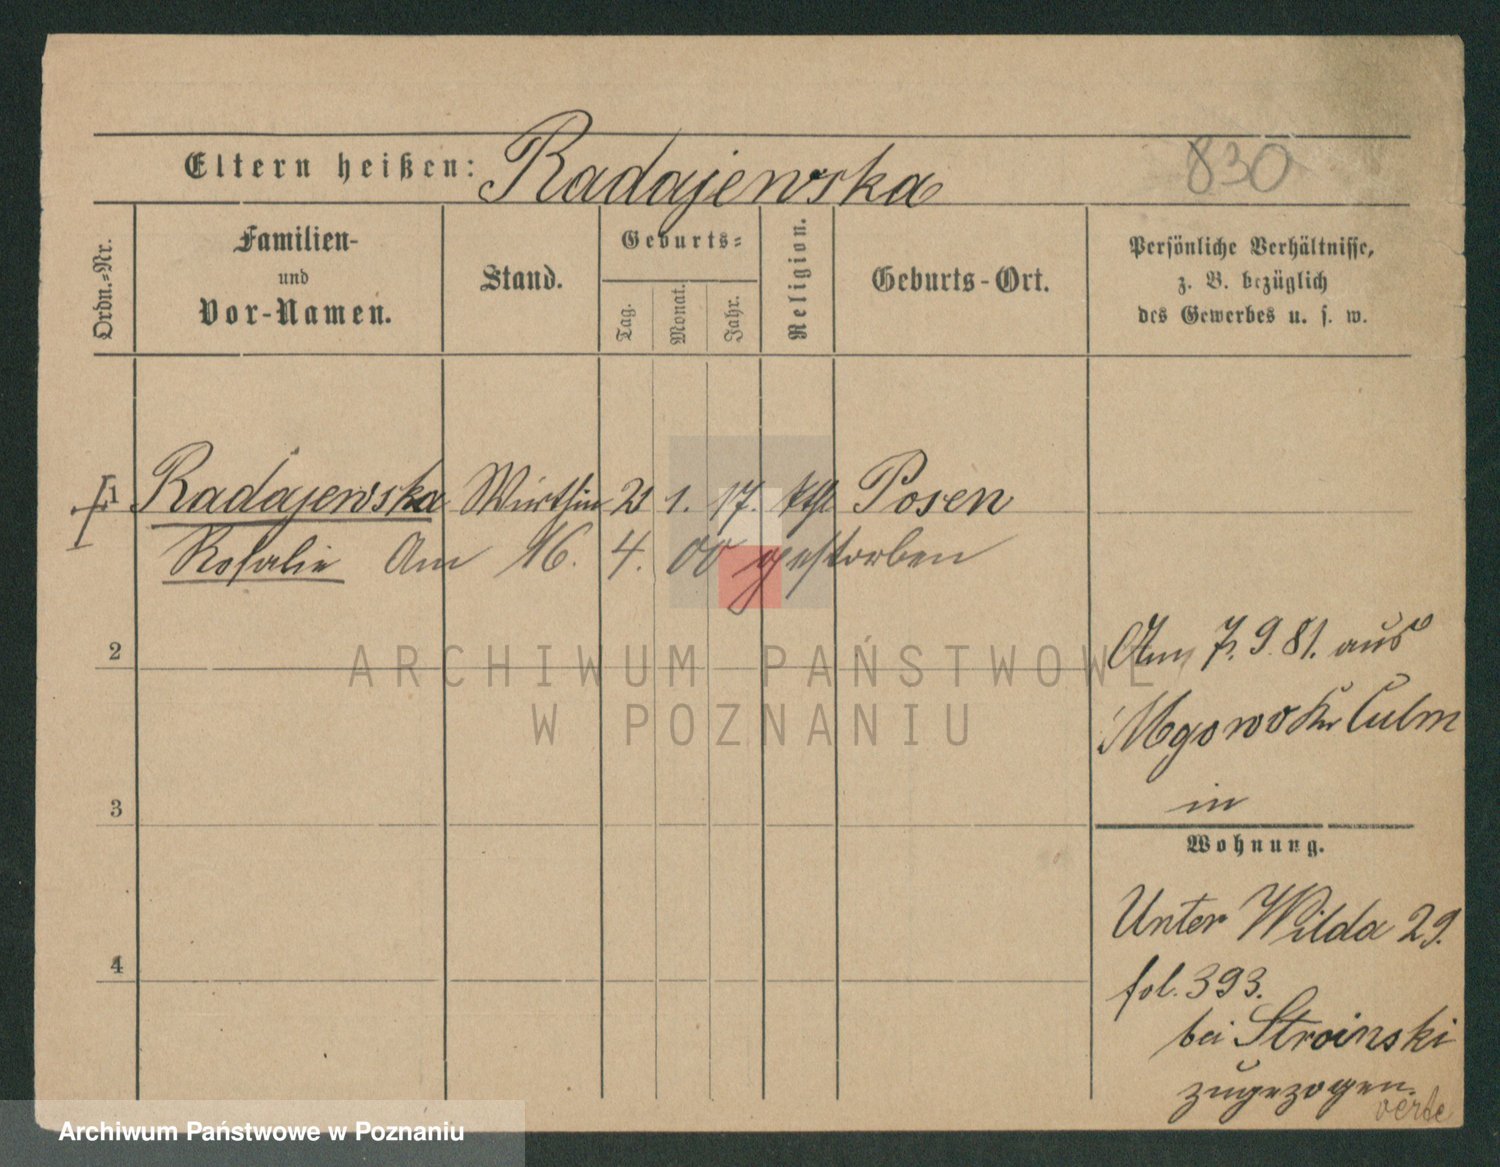 Eltern heißen: Radajewska 830
Ordn.-Nr.
Familien-
und
Vor-Namen.
Stand.
Geburts-
Tag.
Monat.
Jahr.
Religion.
Geburts-Ort.
Persönliche Verhältnisse,
z. B. bezüglich
des Gewerbes u. s. w.
1 Radajewska Wirthin 21 1. 17. kth Posen
Rosalie Am 16. 4. 00 gestorben
2
3
4
7. 9. 81. aus
Mgowo Kr Culm
in
Wohnung.
Unter Wilda 29.
fol. 393.
bei Stroinski
zugezogen.
verte
ARCHIWUM PAŃSTWOWE
W POZNANIU
Archiwum Państwowe w Poznaniu